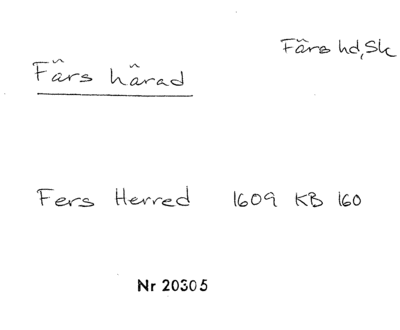 Färs hd, Sk
Färs härad
Fers Herred 1609 KB 160
Nr 20305